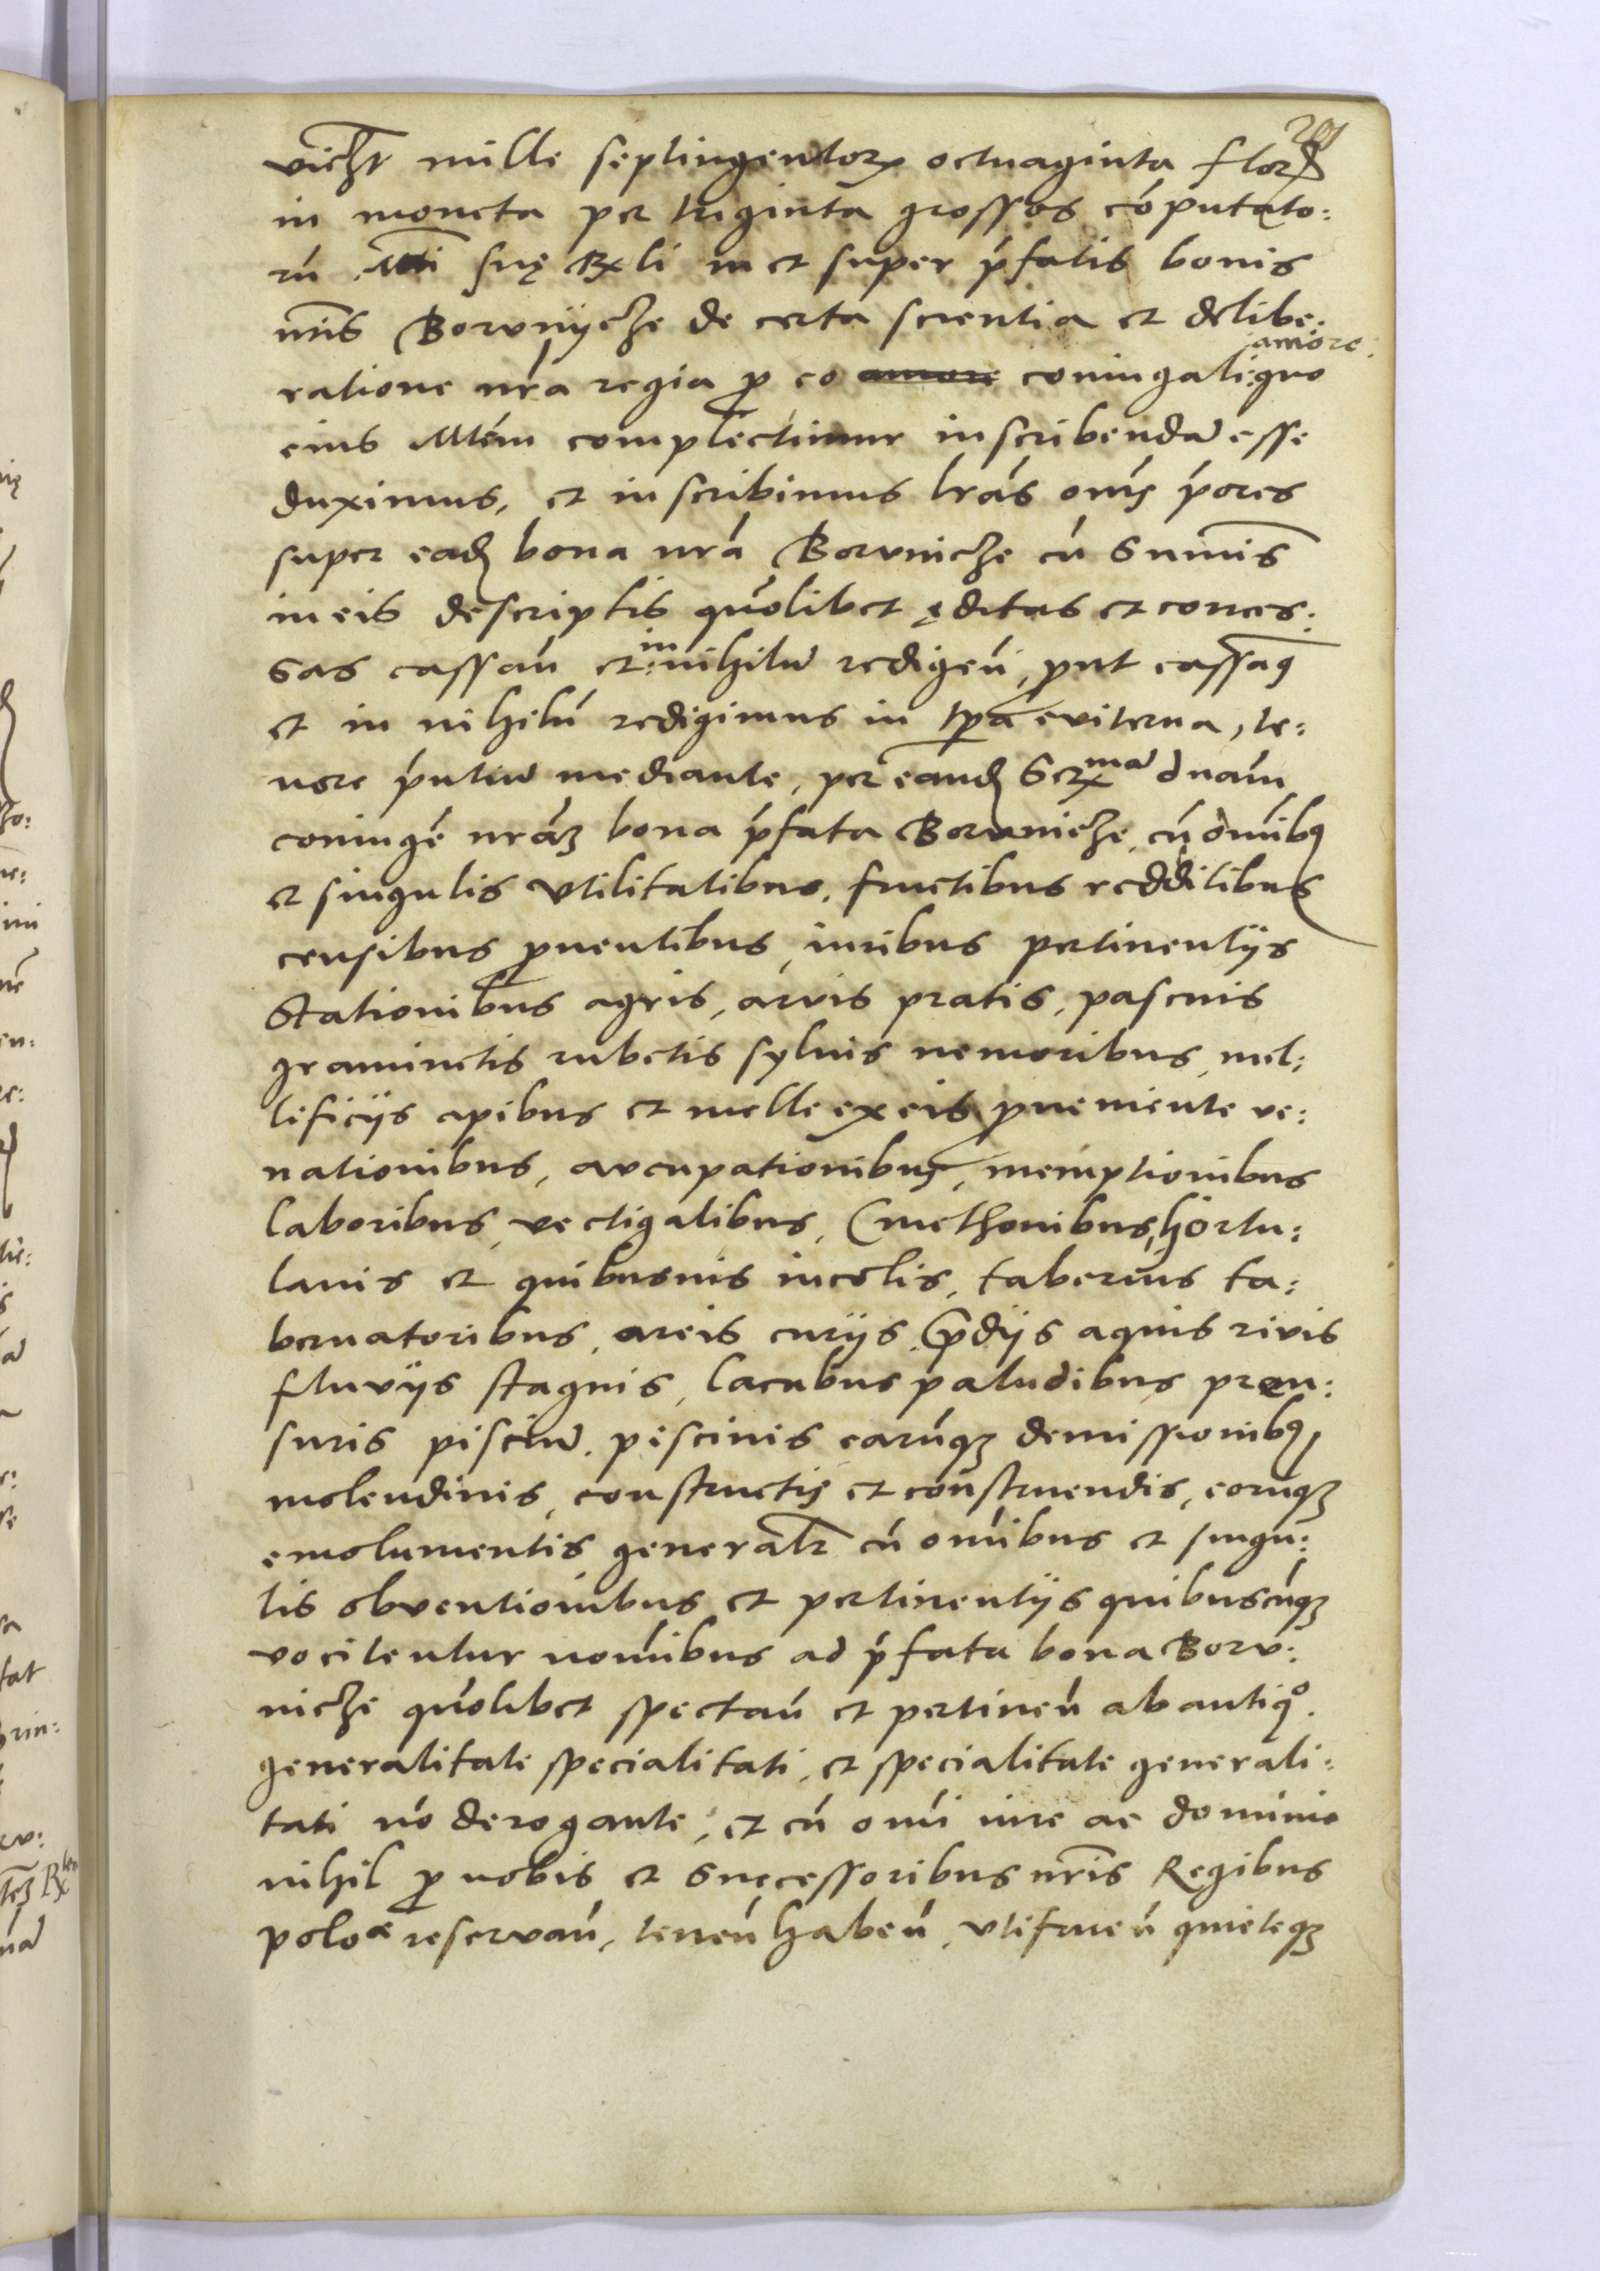 vicȥt mille septingentoꝝ octuaginta floꝝ
in moneta per triginta grossos cóputato:
rú Mti suę Rli in et super pŕfatis bonis
nris Borvnÿcze de certa scientia et delibe:
ratione nŕa regia ꝓ eo amore coniugali quo
amore
eius Mtém complectimur inscribendaˀ esse
duximus, et inscribimus lrás omís pŕores
super eadꝫ bona nrá Borvnicze cú summis
in eis descriptis quólibet ęditas et conces:
sas cassań et in nihiluˀ redigeń, ꝓut cassaꝯ
et in nihilú redigimus in tꝑa eviterna, te:
nore pŕntiuˀ mediante, per eandꝫ Serma dnám
coniugé nráꝫ bona pŕfata Borvnicze, cú omíbꝯ
et singulis vtilitatibus, fructibus redditibus
censibus ꝓuentibus, iuribus pertinentÿs
Stationibus agris, arvis pratis, pascuis
graminetis rubetis syluis nemoribus, mel:
lificÿs apibus et melle ex eis ꝓueniente ve:
nationibus, aucupationibus, memptionibus
laboribus, vectigalibus, Cmethonibus, hortu:
lanis et quibusuis incolis, tabernis ta:
bernatoribus, areis curÿs, p̄dÿs aquis rivis
fluvÿs stagnis, lacubus paludibus pren:
suris pisciuˀ, piscinis earúqꝫ demissionibꝯ
molendinis, constructis et construendis, eorúqꝫ
emolumentis generalr̄ cú omíbus et singu:
lis obventionibus et pertinentÿs quibuscúqꝫ
vocitentur nomíbus ad pŕfata bona Borv:
nicze quólibet spectań et pertineń ab antiqº.
generalitate specialitati, et specialitate generali:
tati nó derogante, et cú omí iure ac dominio
nihil ꝓ nobis et successoribus nris Regibus
poloᵉ reservań, teneń habeń, vtifrueń quieteqꝫ